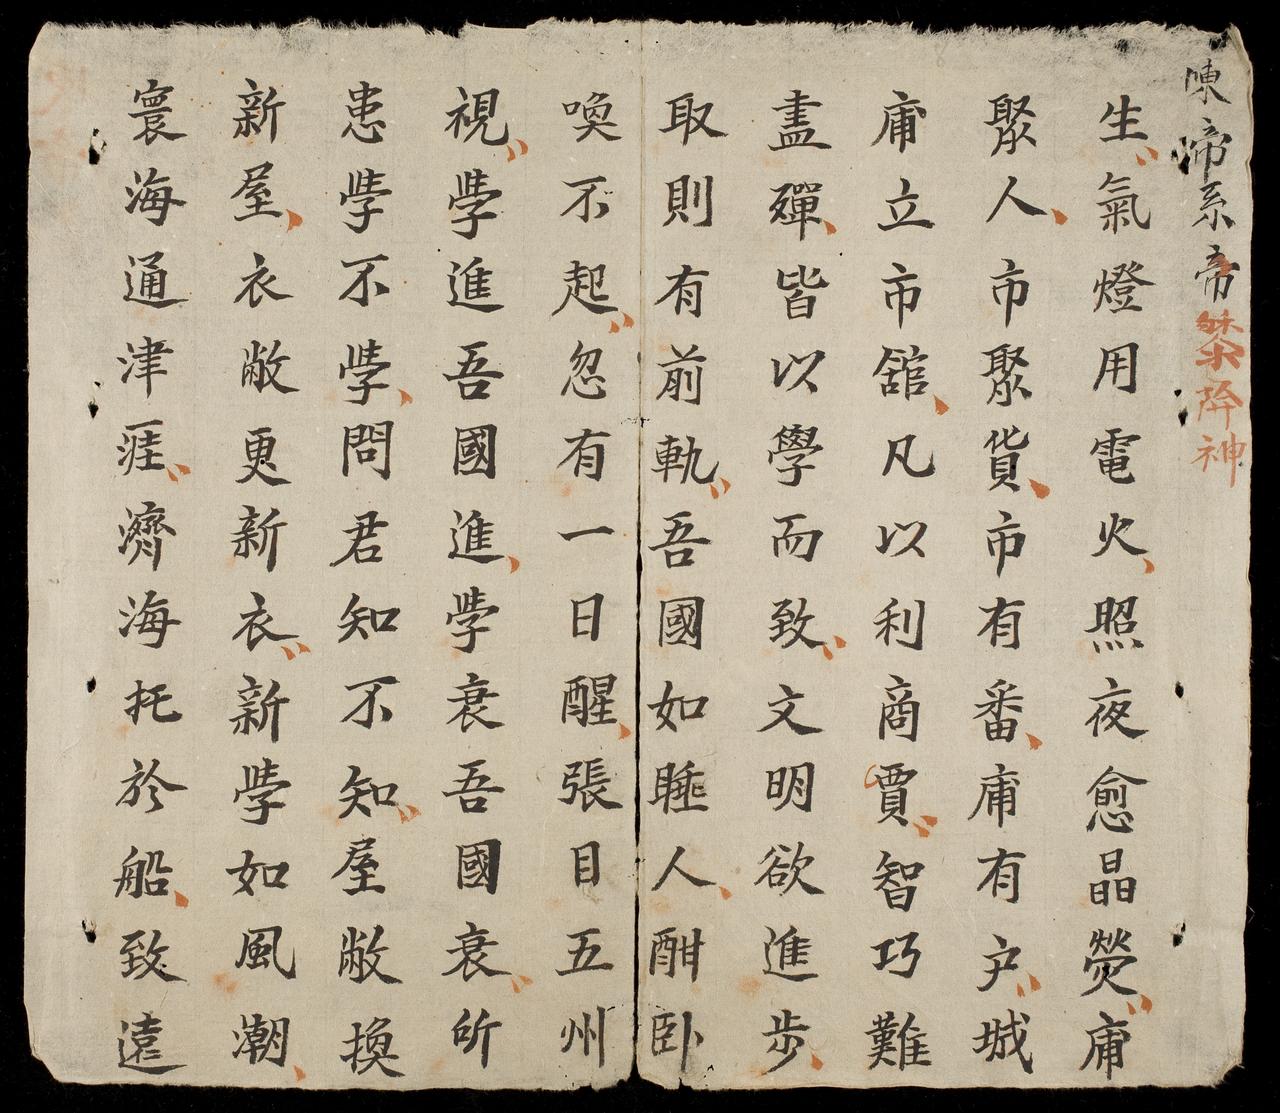 陳啼系帝桀阵神
生氣燈用電火照夜愈晶熒庸
聚人市聚貨市有番庸有户城
庸立市舘凡以利商賈智巧難
盡殫皆以學而致文明欲進步
取則有前軌吾國如睡人酣卧
喚不起忽有一日醒張目五州
視孝進吾國進孝衰吾國衰所
患孝不孝問君知不知屋敝換
新屋衣敝更新衣新孝如風潮
寰海通津涯濟海托於船致遠